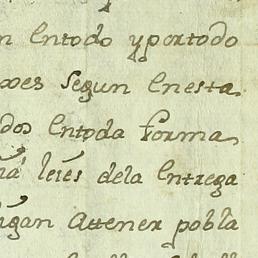 n Entodo yportodo
xoes Segun Enesta
dos Entoda forma
na leies dela Entrega
igan Attener pobla